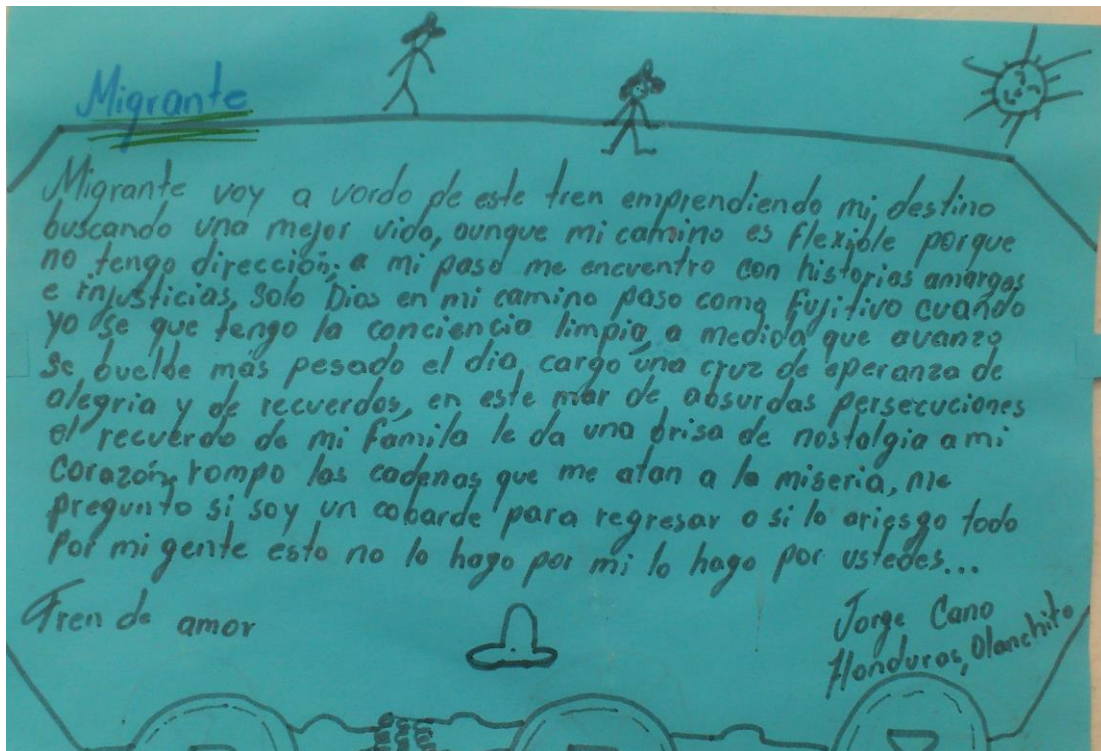 Migrante
Migrante voy a vordo de este tren emprendiendo mi destino
buscando una mejor vida, aunque mi camino es flexible porque
no tengo dirección, a mi paso me encuentro con historias amargas
e injusticias, solo Dios en mi camino paso como Fujitivo cuando
yo se que tengo la conciencia limpia, a medida que avanzo
se buelbe más pesado el dia, cargo una cruz de eperanza de
alegria y de recuerdos, en este mar de absurdas persecuciones
el recuerdo de mi famila le da una brisa de nostalgia a mi
corazón, rompo las cadenas que me atan a la miseria, me
pregunto si soy un cobarde para regresar o si lo ariesgo todo
por mi gente esto no lo hago por mi lo hago por ustedes...
Tren de amor
Jorge Cano
Honduras, Olanchito